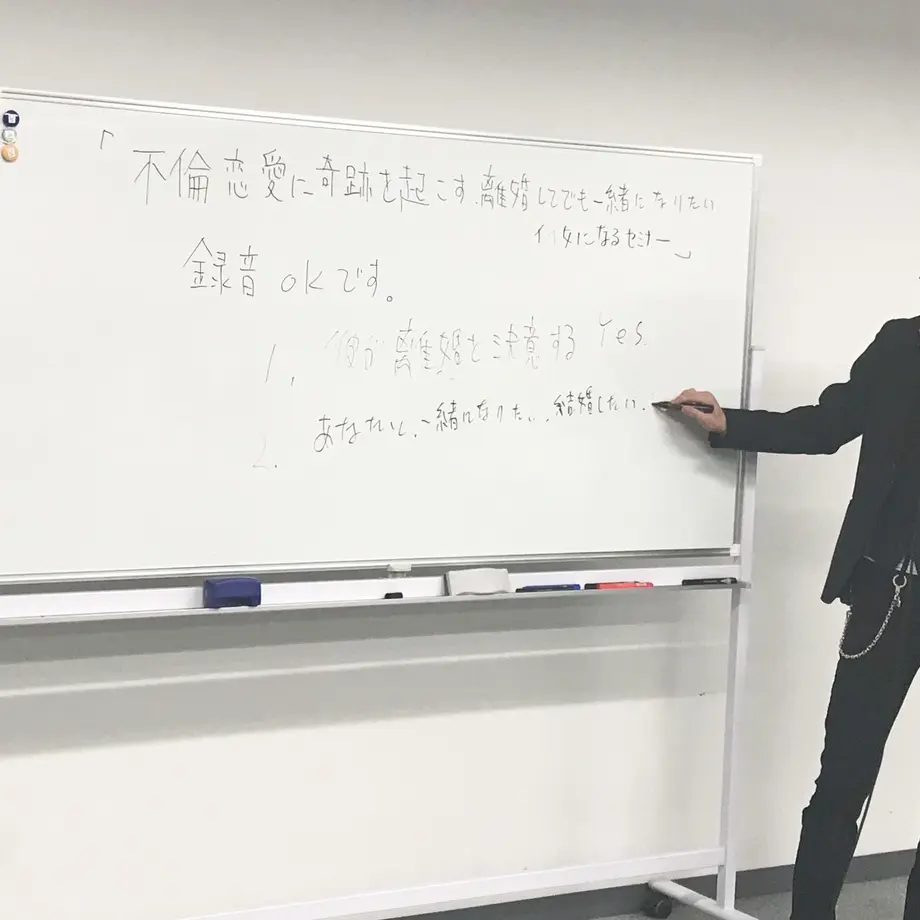 「不倫恋愛に奇跡を起こす離婚してでも一緒になりたい
女になるセミナー」
録音okです。
1. 彼が離婚を決意する Yes.
あなたと、一緒になりたい、結婚したい、
2.